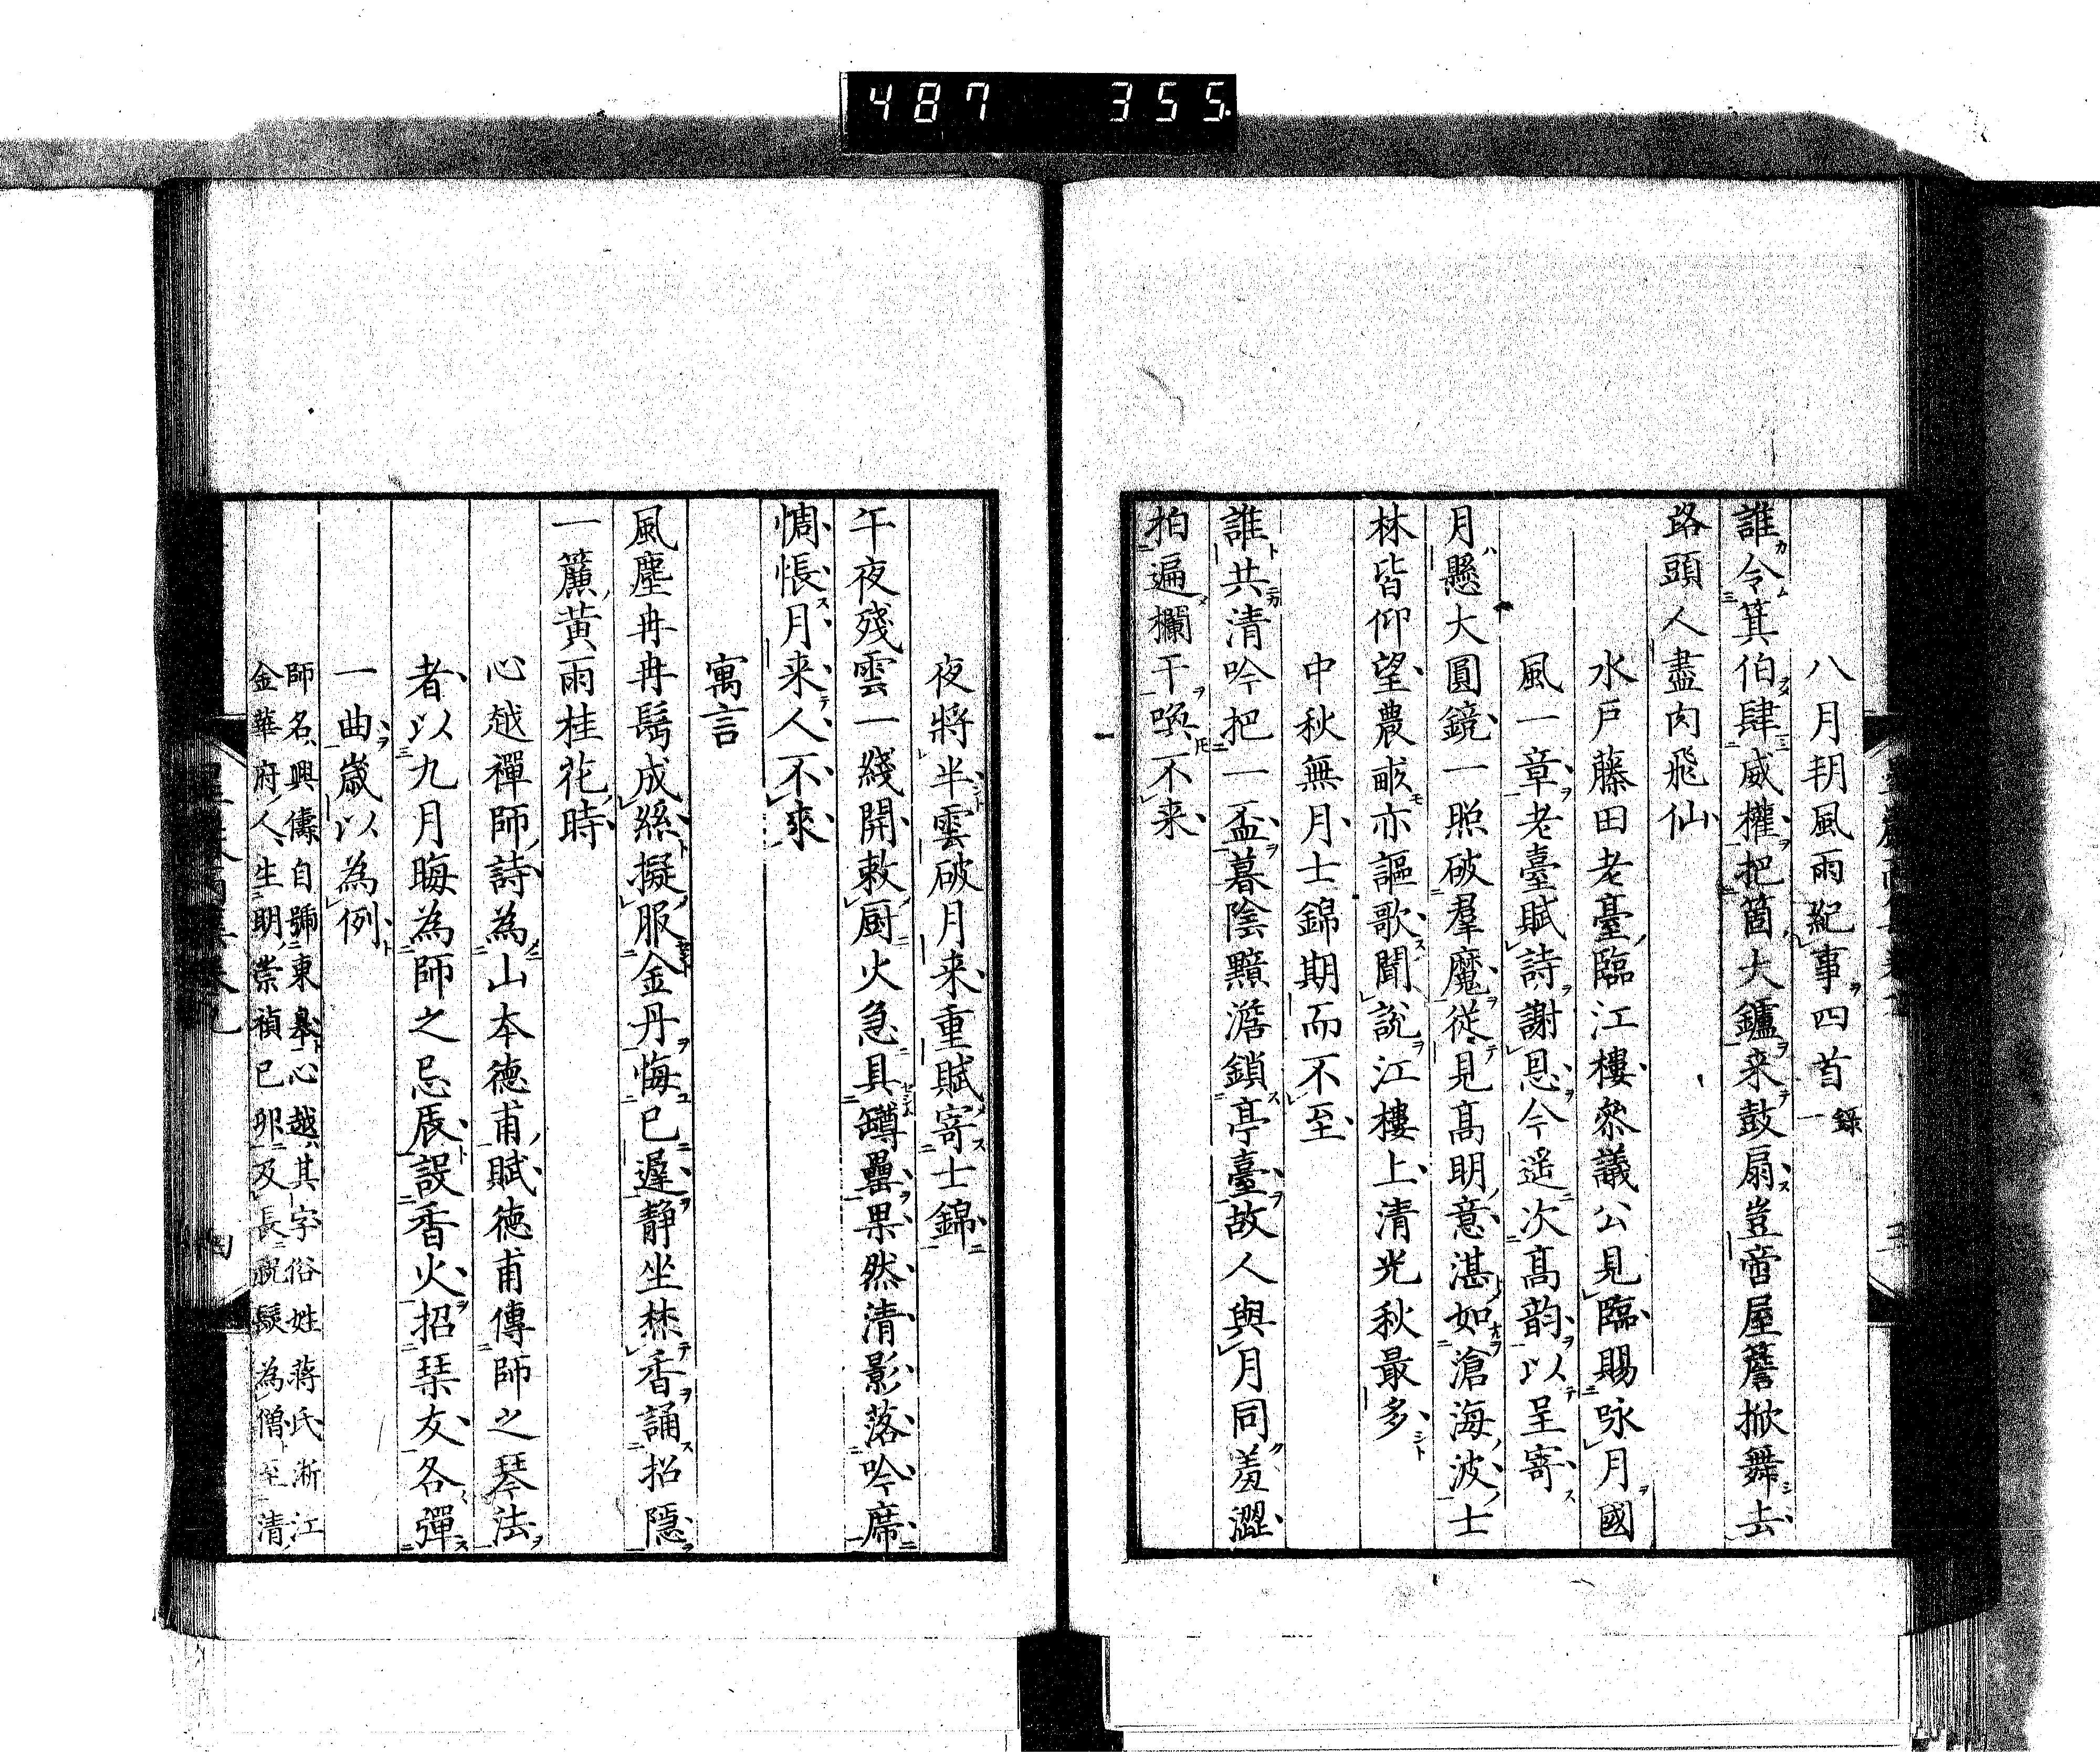 487 355
八月朔風雨紀事四首錄一
誰令箕伯肆威權把箇大鑪来鼓扇豈啻屋簷掀舞去
路頭人盡肉飛仙
水戶藤田老臺臨江樓叅議公見臨賜咏月國
風一章老臺賦詩謝恩今遥次髙韵以呈寄
月懸大圓鏡一照破羣魔従見髙明意湛如滄海波士
林皆仰望農畝亦謳歌聞說江樓上清光秋最多
中秋無月士錦期而不至
誰共清吟把一盃暮陰黯澹鎖亭臺故人與月同羞澀
拍遍欄干喚不来
夜將半雲破月来重賦寄士錦
午夜殘雲一綫開敕厨火急具罇罍果然清影落吟席
惆悵月来人不來
寓言
風塵冉冉髩成絲擬服金丹悔已遲静坐焚香誦招隱
一簾黃雨桂花時
心越禪師詩為山本徳甫賦徳甫傳師之琴法
者以九月晦為師之忌辰設香火招琹友各彈
一曲歳以為例
師名興儔自號東皋心越其字俗姓蔣氏淅江
金華府人生明崇禎已卯及長祝髮為僧至清